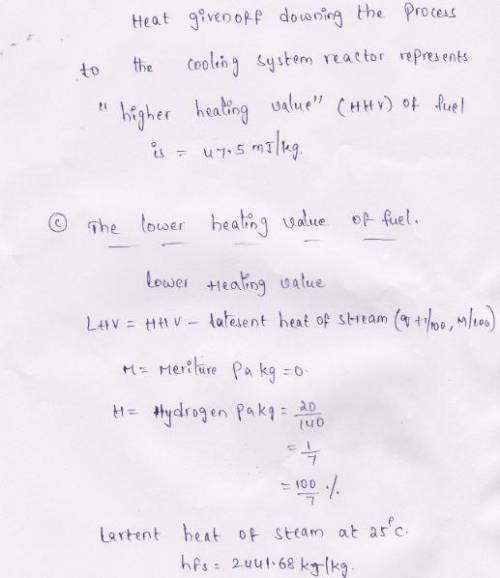 Heat givenoff downing the Process
to the cooling system reactor represents
"higher heating value" (HHV) of fuel
is = 47.5 mJ/kg.
(c) The lower heating value of fuel.
lower Heating value
LHV = HHV - latesent heat of stream (9+1/100, M/100)
M = Meriture Pa kg = 0.
H = Hydrogen Pa kg = 20/140
= 1/7
= 100/7 %
Lartent heat of steam at 25°c.
hfs = 2441.68 kg/kg.